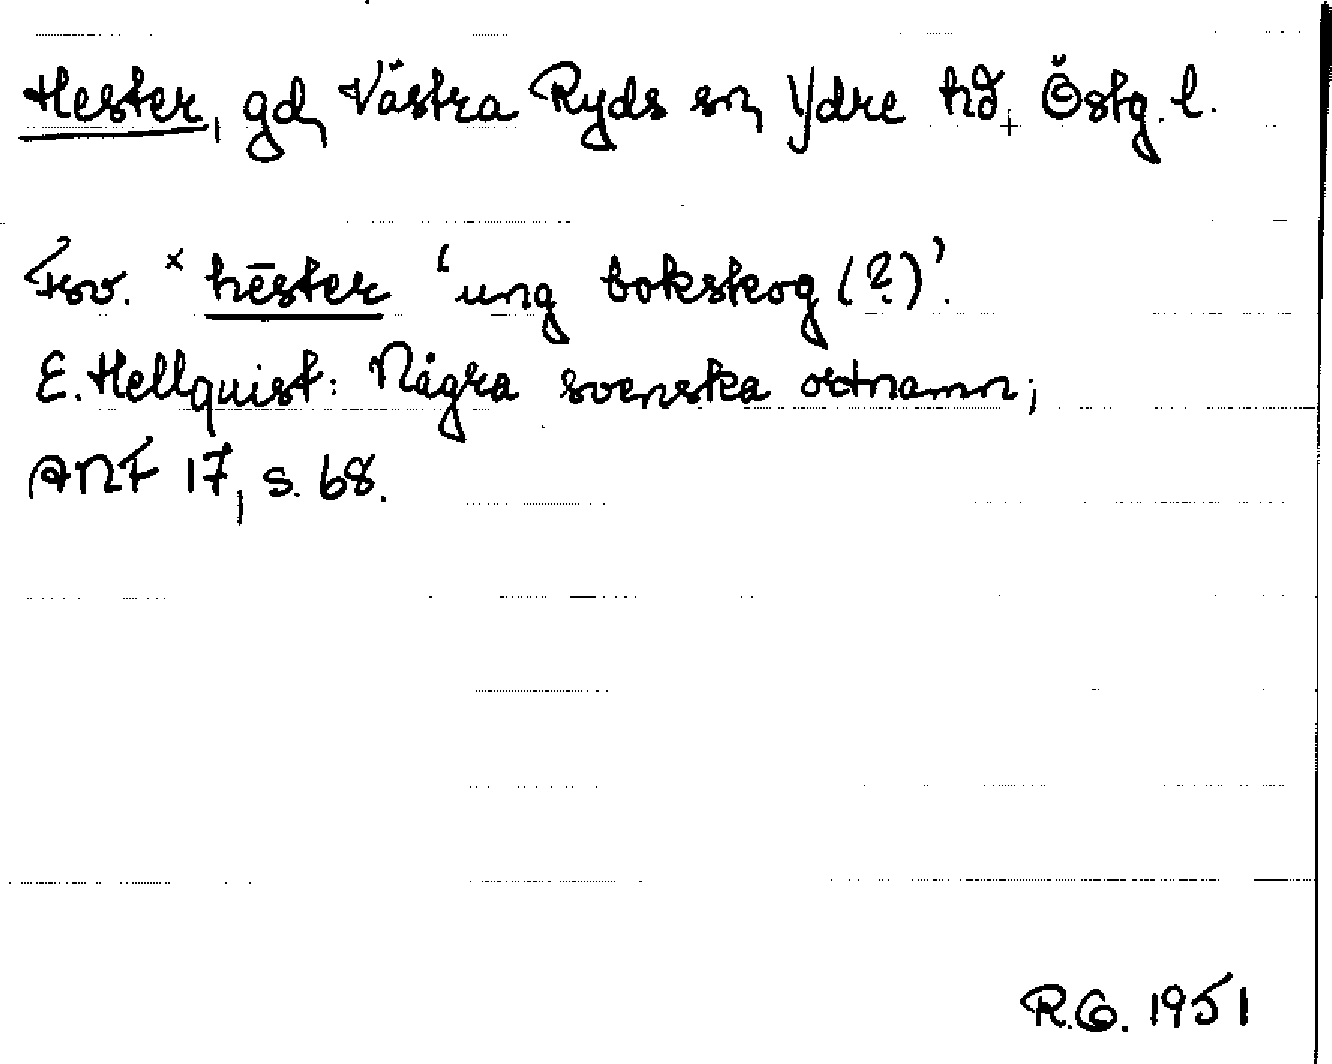 Hester, gd, Västra Ryds sn, Ydre hd, Östg. l.
Fsv. ×hēster 'ung bokskog (?)'.
E. Hellquist: Några svenska ortnamn;
ANF 17, s. 68.
R.G. 1951